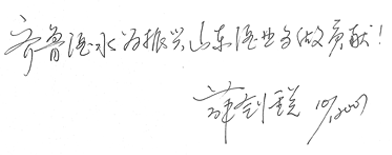 齐鲁酒水为振兴山东酒业多做贡献！
薛剑锐 10/2007